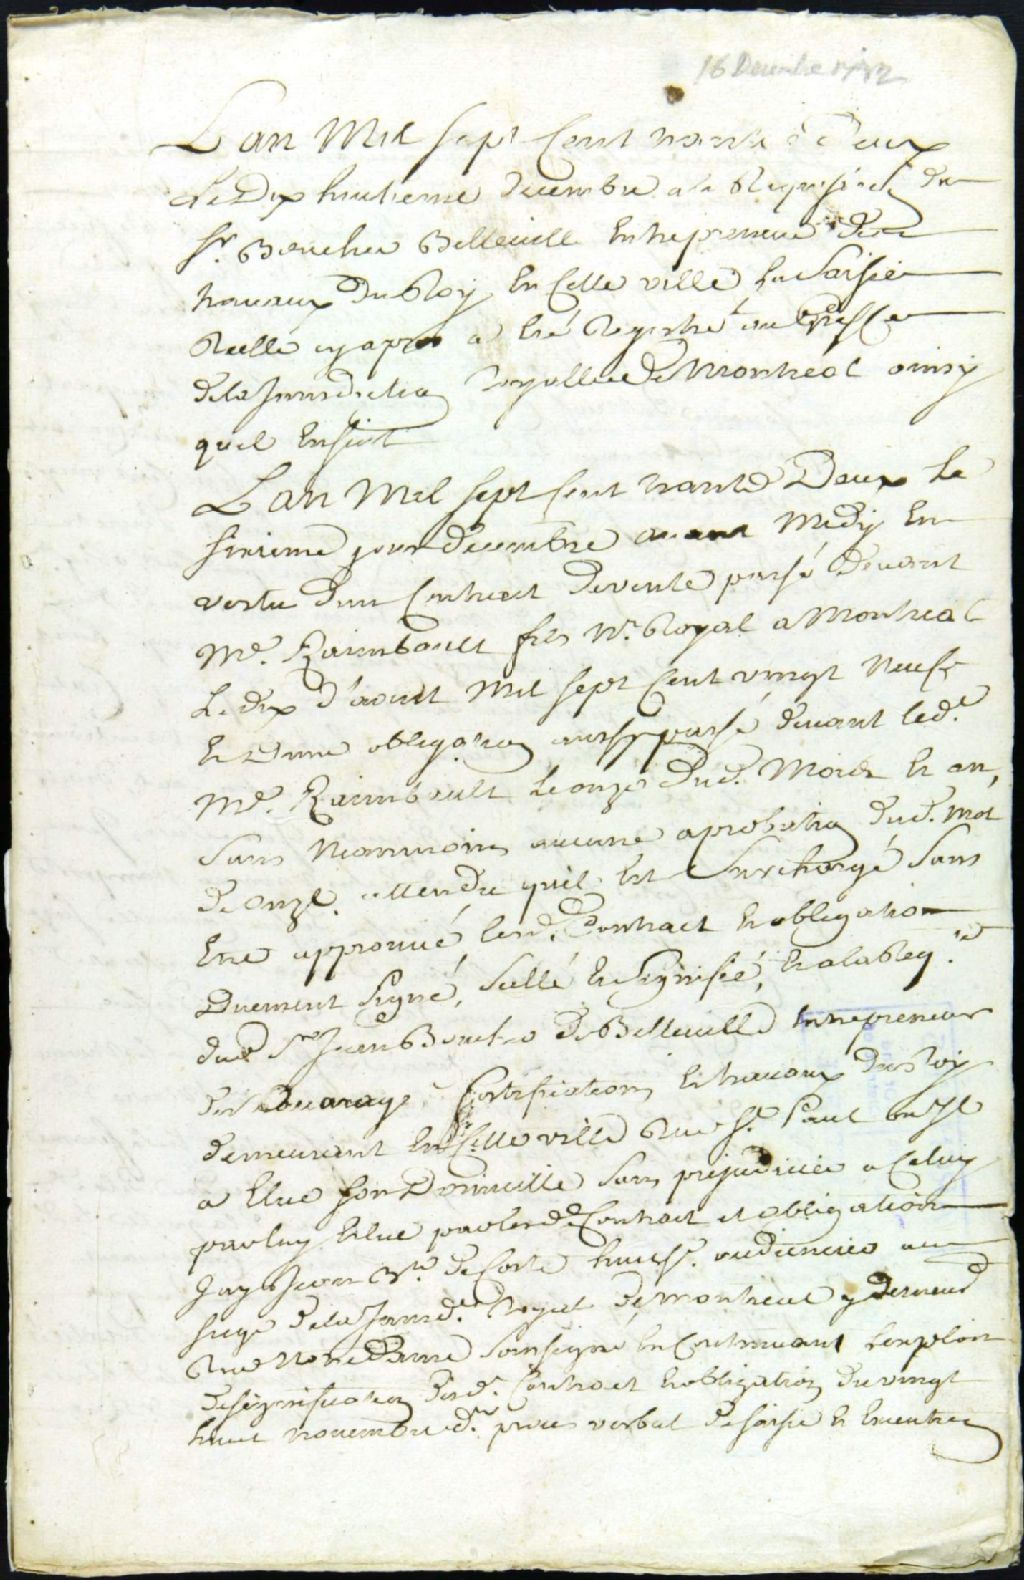 16 Decembre 1732
Lan Mil sept Cent trante & Deux
Le Dix huitieme decembre a la Requisió. du
Sr. Boucher Belleville Entrepreneur des
travaux Du Roy En Cette ville La Saisie
Reelle cy apres a Eté Registré au Greffe
de la Jurisdiction Royalle de Montreal ainsy
quil Ensuit
Lan Mil sept Cent trante Deux Le
seizieme jour decembre avant Midy En
vertu dun Contract de vente passé devant
Me. Raimbault fils Nre. Royal a Montreal
Le dix d'aoust Mil sept Cent vingt Neuf
Et dune obligation aussy passé devant led.
Me. Raimbault Le onze dud. Mois Et an,
sans neanmoins aucune aprobation dud. mot
de onze. attendu quil Est Surchargé Sans
Etre approuvé, lesd. Contract Et obligation
Duement signé, Sellé Et Signifié, Et a la Reqte.
dud. Sr. Jean Boucher De Belleville Entrepreneur
des ouvrage fortifications Et travaux du Roy
demeurant En Cette ville Rue St. Paul ou Il
a Elue son Domicille sans prejudicier a Celuy
par luy Elue par lesd. Contract et obligation
Jay Jean Bte. Decoste huiss. audiancier au
siege de la Jurisd. Royal de Montreal y demeurt
Rue Notre Dame soussigné En Continuant lexploit
de signification desd. Contract Et obligation du vingt
huit novembre dr. proces verbal de saisie Et Execution